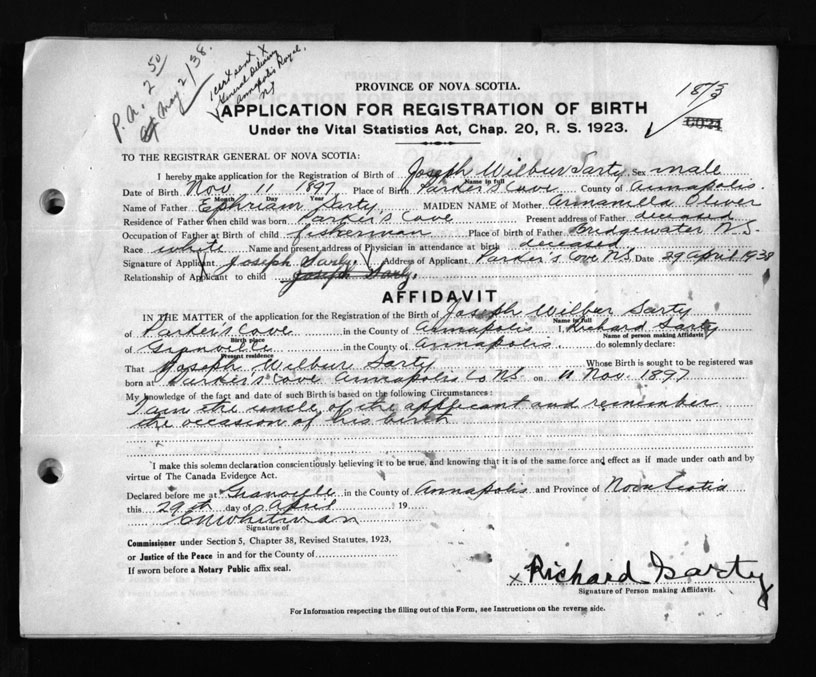 P.A. 2 50
May 2/38.
cert sent x
General Delivery
Annapolis Royal,
NS
PROVINCE OF NOVA SCOTIA.
APPLICATION FOR REGISTRATION OF BIRTH
Under the Vital Statistics Act, Chap. 20, R. S. 1923.
TO THE REGISTRAR GENERAL OF NOVA SCOTIA:
I hereby make application for the Registration of Birth of Joseph Wilbur Sarty Sex male
Name in full
Date of Birth Nov 11 1897 Place of Birth Parker's Cove County of Annapolis.
Month Day Year
Name of Father Ephriam Sarty, MAIDEN NAME of Mother Armanilla Oliver
Residence of Father when child was born Parker's Cove Present address of Father deceased
Occupation of Father at Birth of child fisherman Place of birth of Father Bridgewater N.S.
Race white Name and present address of Physician in attendance at birth deceased
Signature of Applicant Joseph Sarty. Address of Applicant Parker's Cove N.S. Date 29 April 1938
Relationship of Applicant to child Joseph Sarty.
AFFIDAVIT
IN THE MATTER of the application for the Registration of the Birth of Joseph Wilber Sarty
Name in full
of Parker's Cove in the County of Annapolis I, Richard Sarty
Birth place Name of person making Affidavit
of Granville in the County of Annapolis. do solemnly declare:
Present residence
That Joseph Wilbur Sarty Whose Birth is sought to be registered was
born at Parker's Cove Annapolis Co NS. on 11 Nov. 1897
My knowledge of the fact and date of such Birth is based on the following Circumstances:
I am the uncle of the applicant and remember
the occasion of his birth
x
I make this solemn declaration conscientiously believing it to be true, and knowing that it is of the same force and effect as if made under oath and by
virtue of The Canada Evidence Act.
Declared before me at Granville in the County of Annapolis and Province of Nova Scotia
this 29th day of April 19
Whitman
Signature of
Commissioner under Section 5, Chapter 38, Revised Statutes, 1923,
or Justice of the Peace in and for the County of
If sworn before a Notary Public affix seal.
x Richard Sarty
Signature of Person making Affidavit.
For Information respecting the filling out of this Form, see Instructions on the reverse side.